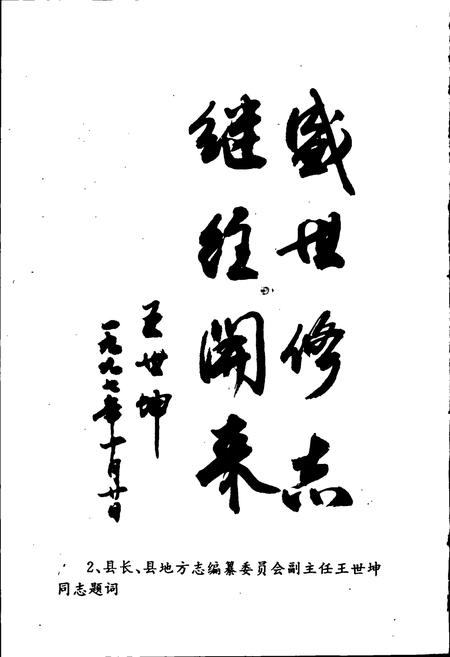 盛世修志
继往开来
王世坤
一九九七年十月廿日
2、县长、县地方志编纂委员会副主任王世坤
同志题词